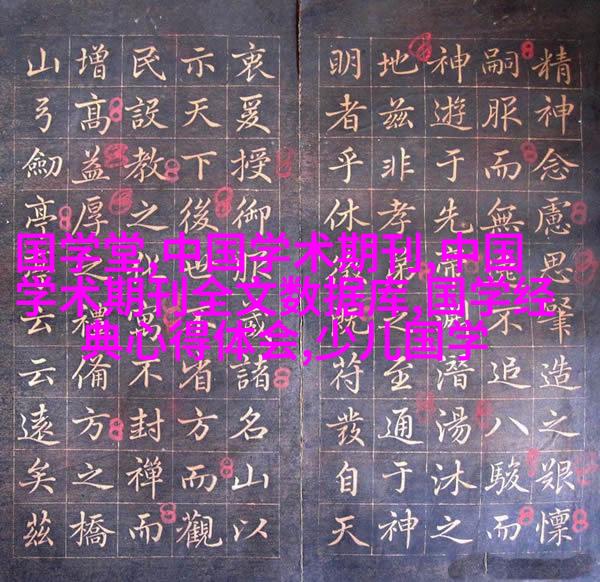 国学堂,中国学术期刊,中国
学术期刊全文数据库,国学经
典心得体会,少儿国学
精神念慮思肇造之艱懍
嗣服而無不追八駿而
神遊于先帝潛湯沐之
地茲非孝弟之至通于神
明者乎休徵既符發自天
衷爰授御服藏諸名山以
示天下後世省方而觀
民設教之不封禪而
增高益厚之禮備方之橋
山弓劒亭云云遠矣茲